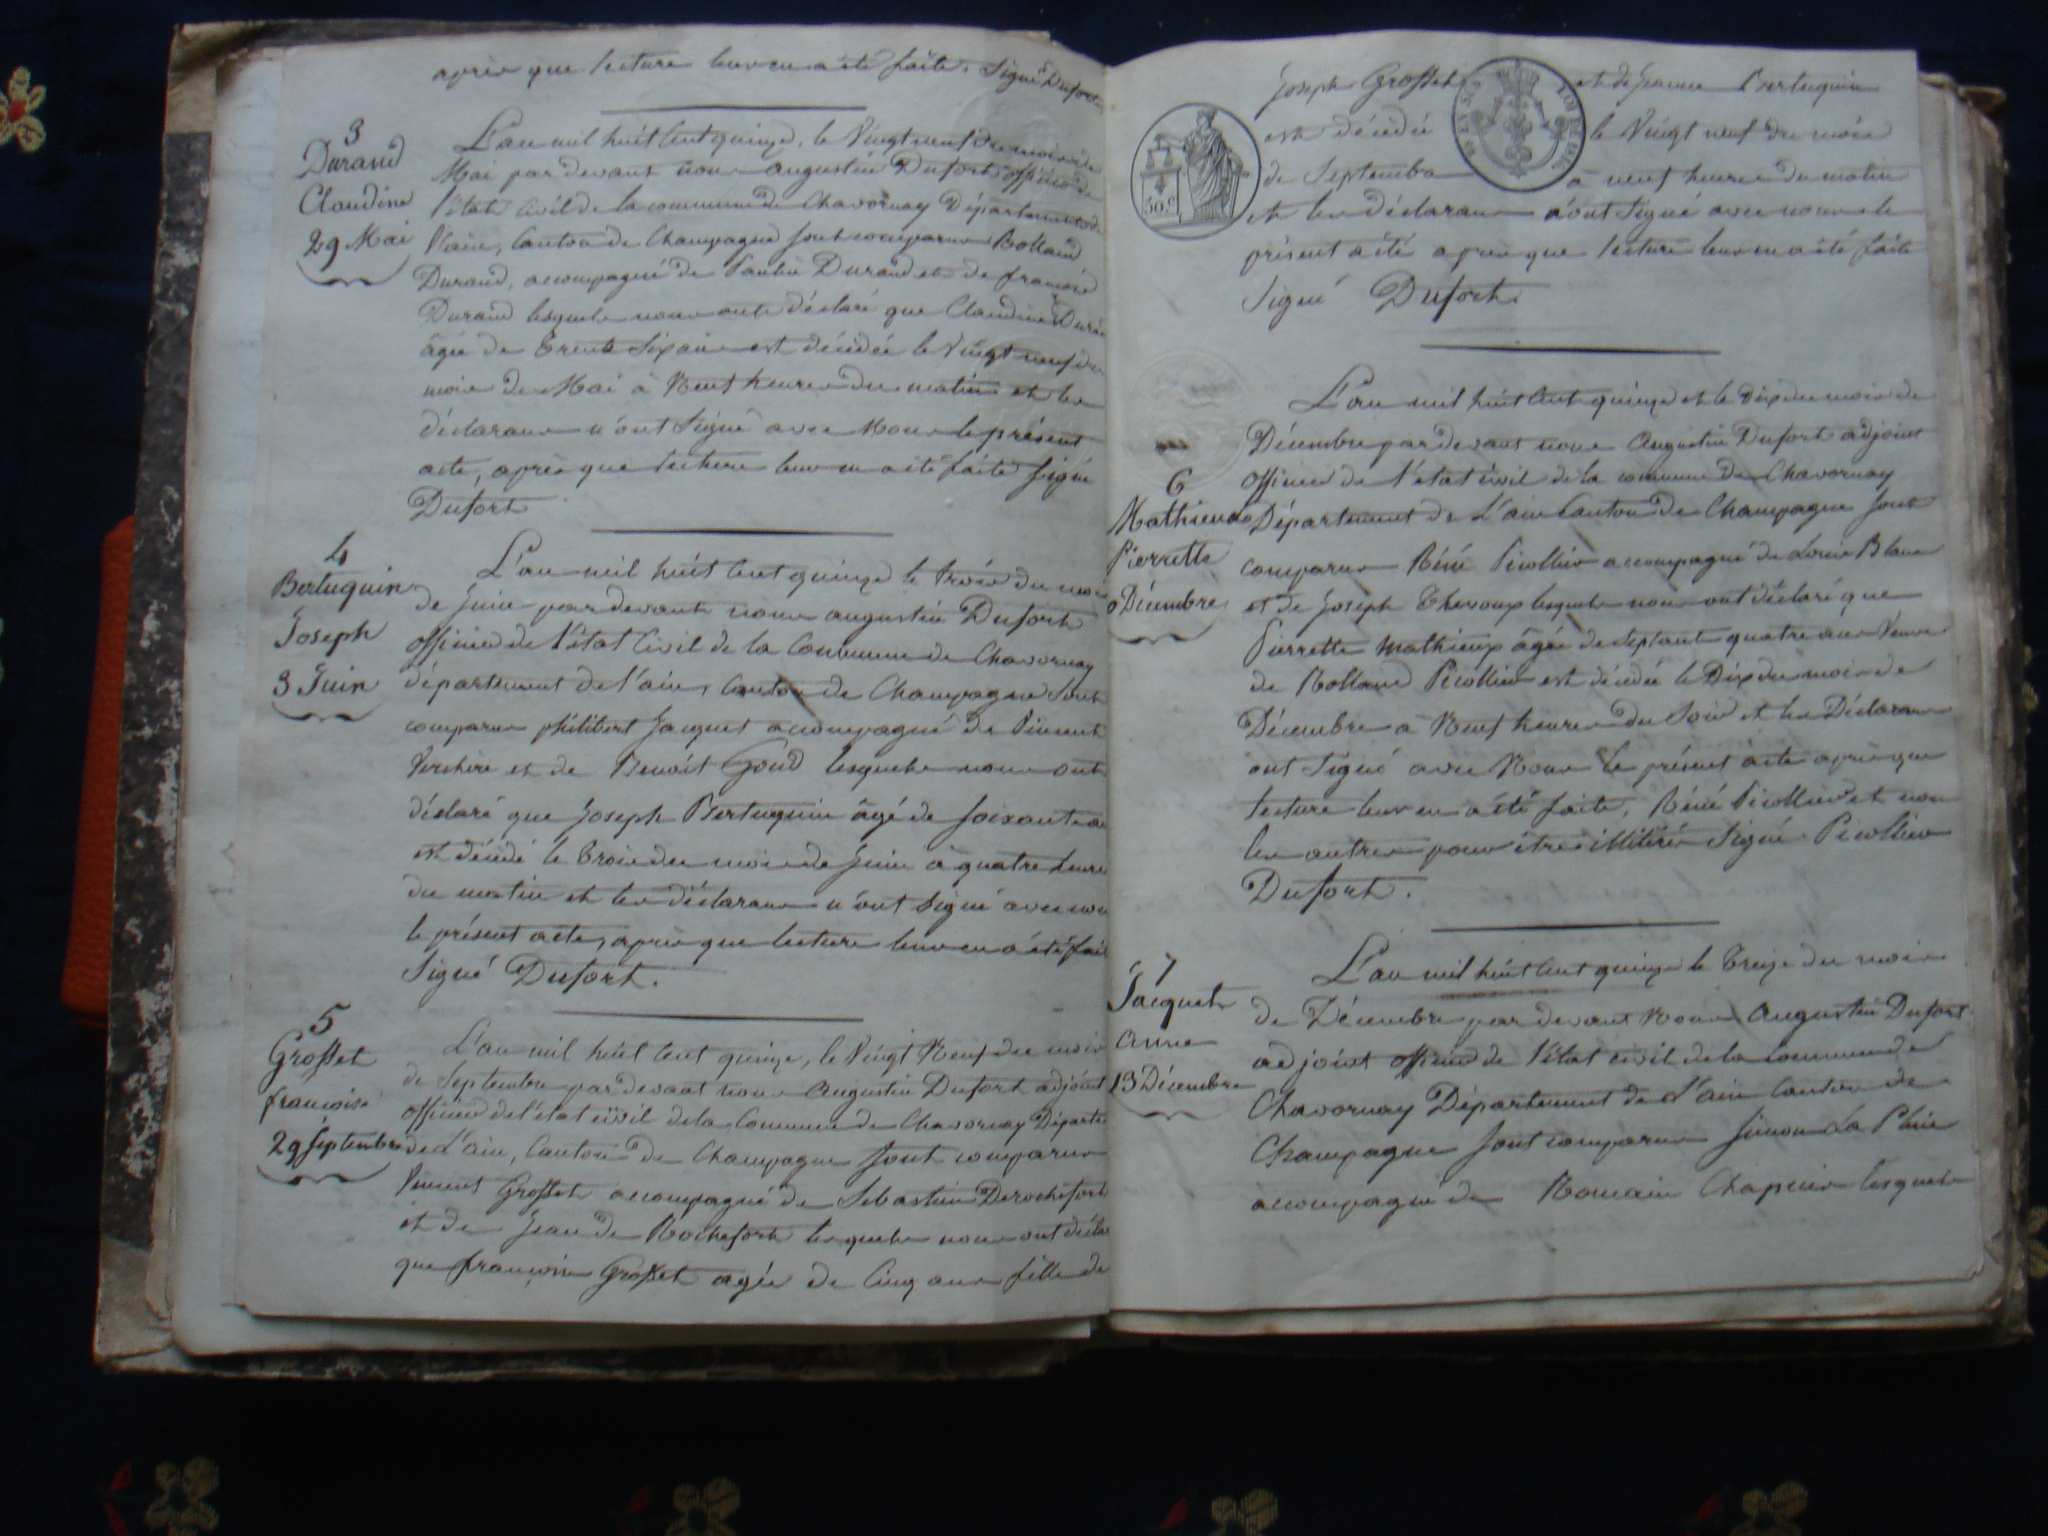 après que lecture leur en a été faite. Signé Dufort
3
Durand
Claudine
29 Mai
L'an mil huit cent quinze, le Vingt neuf du mois de
Mai par devant nous augustin Dufort officier de
l'état Civil de la commune de Chavornay Département de
l'ain, Canton de Champagne sont comparus Rolland
Durand, accompagné de Paulin Durand et de françois
Durand lesquels nous ont déclaré que Claudine Durand
âgée de trente six ans est décédée le vingt neuf du
mois de Mai à Neuf heures du matin et les
déclarans n'ont signé avec Nous le présent
acte, après que lecture leur en a été faite signé
Dufort
4
Bertuquin
Joseph
3 Juin
L'an mil huit cent quinze le trois du mois
de Juin par devant nous augustin Dufort
officier de l'état Civil de la Commune de Chavornay
département de l'ain, canton de Champagne Sont
comparus philibert Jacquet accompagné de Vincent
et de Benoît Goud lesquels nous ont
déclaré que Joseph Bertuquin âgé de soixante ans
est décédé le trois du mois de Juin à quatre heures
du matin et les déclarans n'ont signé avec nous
le présent acte, après que lecture leur en a été fait
Signé Dufort.
5
Grosset
françoise
29 septembre
L'an mil huit cent quinze, le Vingt Neuf du mois
de Septembre par devant nous Augustin Dufort adjoint
officier de l'état civil de la Commune de Chavornay Départe
de L'ain, Canton de Champagne sont comparus
Vincent Grosset accompagné de Sébastien Derochefort
et de Jean de Rochefort lesquels nous ont décla
que françoise Grosset agée de Cinq ans fille de
Joseph Grosset et de Jeanne Bertuquin
est décédée le Vingt neuf du mois
de Septembre à neuf heures du matin
et les déclarans n'ont signé avec nous le
présent acte après que lecture leur en a été faite
Signé Dufort.
50 c
LOI DE 1816
6
Mathieux
Pierrette
0 Décembre
L'an mil huit Cent quinze et le dix du mois de
Décembre par devant nous Augustin Dufort adjoint
officier de l'état civil de la commune de Chavornay
Département de L'ain Canton de Champagne sont
comparus Réné Picollier accompagné de Louis Blanc
et de Joseph lesquels nous ont déclaré que
Pierrette Mathieux âgée de septante quatre ans Veuve
de Rolland Picollier est décédée le Dix du mois de
Décembre à Neuf heures du Soir et les Déclarans
ont Signé avec Nous le présent acte après que
lecture leur en a été faite, Réné Picollier et non
les autres pour être illitérés Signé Picollier
Dufort.
7
Jacquet
Anne
13 Décembre
L'an mil huit Cent quinze le treize du mois
de Décembre par devant Nous Augustin Dufort
adjoint officier de l'état civil de la Commune de
Chavornay Département de L'ain Canton de
Champagne Sont comparus Simon La Pluie
accompagné de Romain Chapuis lesquels